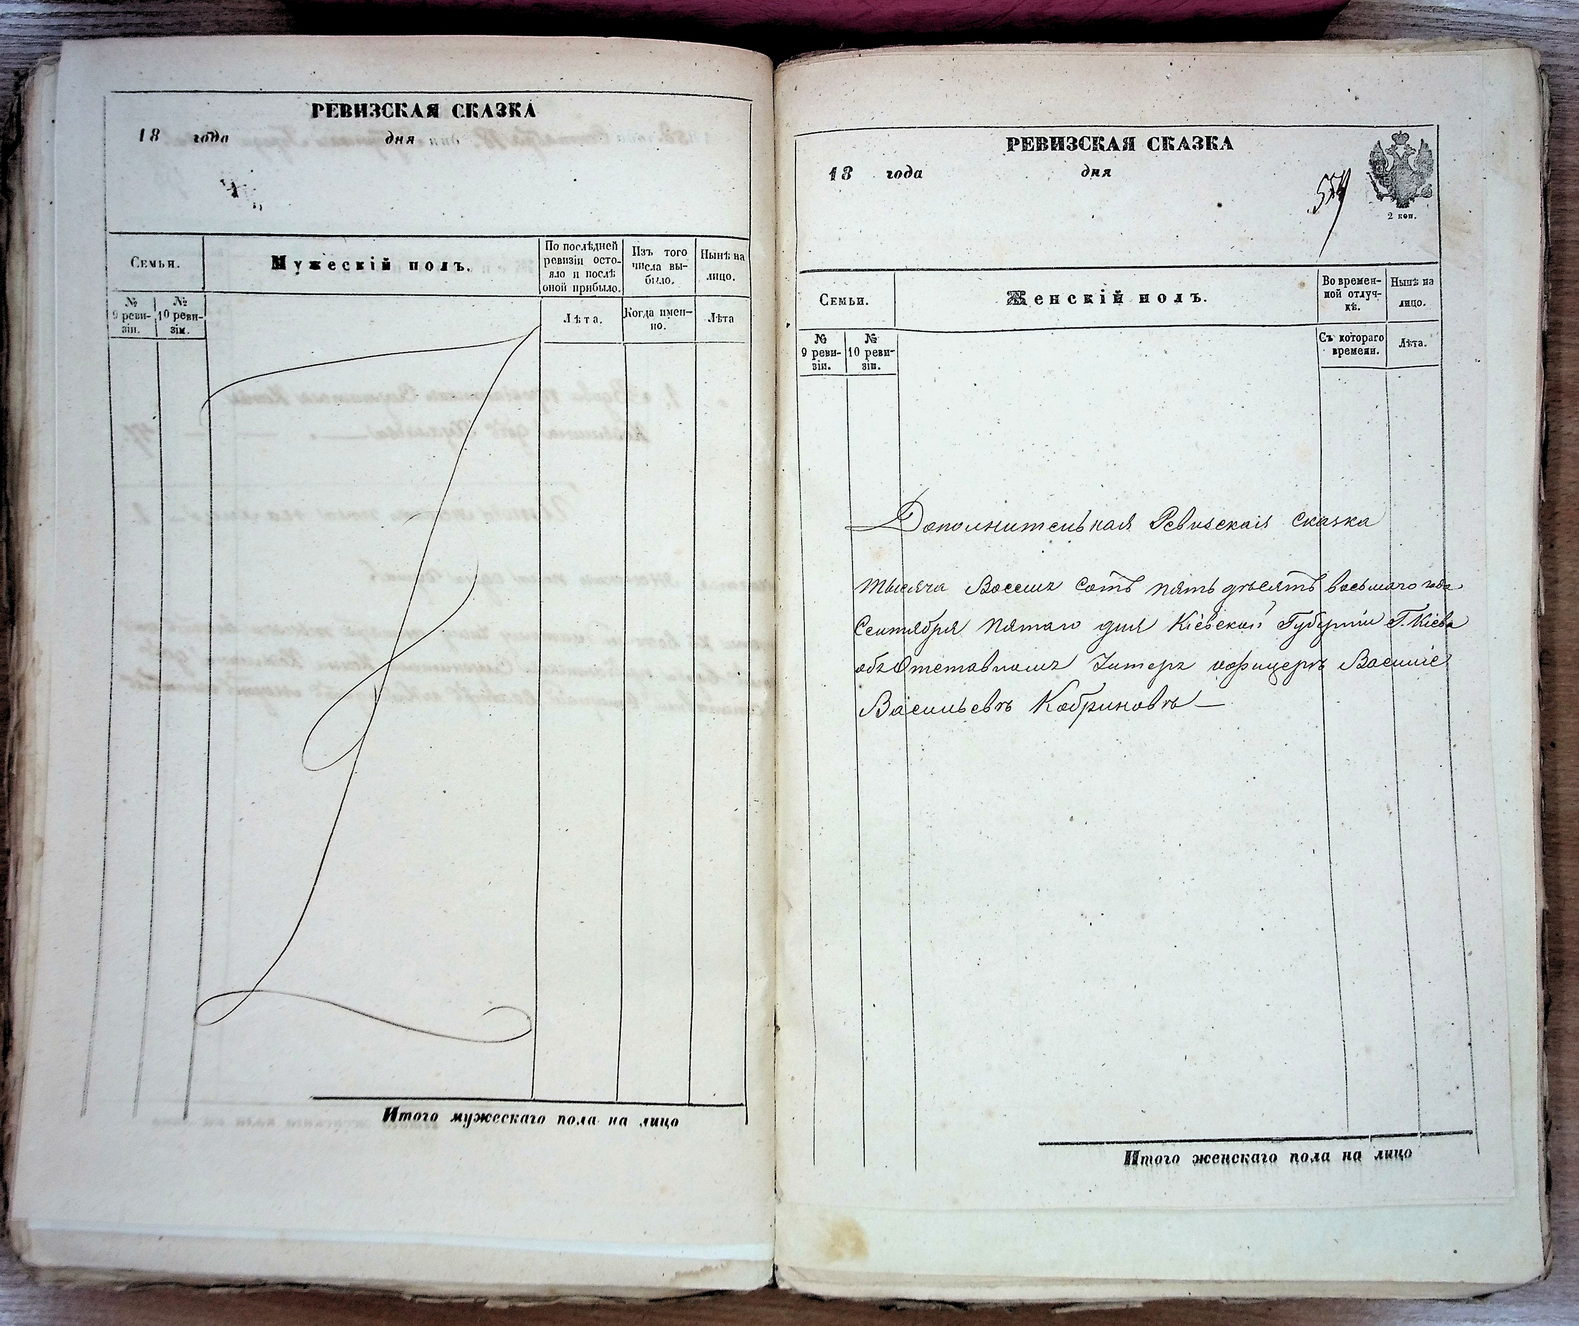 РЕВИЗСКАЯ СКАЗКА
18 года дня
Семьи.
Мужескій полъ.
По послѣдней
ревизіи осто-
яло и послѣ
оной прибыло.
Изъ того
числа вы-
было.
Нынѣ на
лицо.
№
9 реви-
зіи.
№
10 реви-
зіи.
Лѣта.
Когда имен-
но.
Лѣта
Итого мужескаго пола на лицо
РЕВИЗСКАЯ СКАЗКА
18 года дня
559
2 коп.
Семьи.
Женскій полъ.
Во времен-
ной отлуч-
кѣ.
Нынѣ на
лицо.
№
9 реви-
зіи.
№
10 реви-
зіи.
Съ котораго
времени.
Лѣта.
Дополнительная Ревизская сказка
тысяча Восемь сотъ пятьдесятъ восьмаго года
Сентября пятаго дня Кіевской Губерніи Г. Кіева
объ Отставномъ Унтеръ офицерѣ Василіе
Васильевѣ Кобриновѣ
Итого женскаго пола на лицо